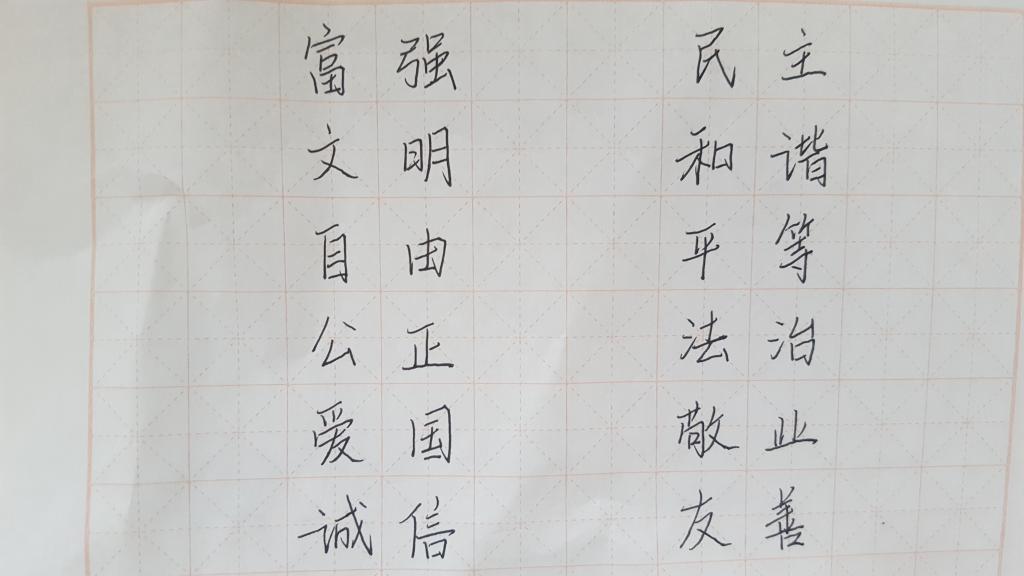 富强 民主
文明 和谐
自由 平等
公正 法治
爱国 敬业
诚信 友善